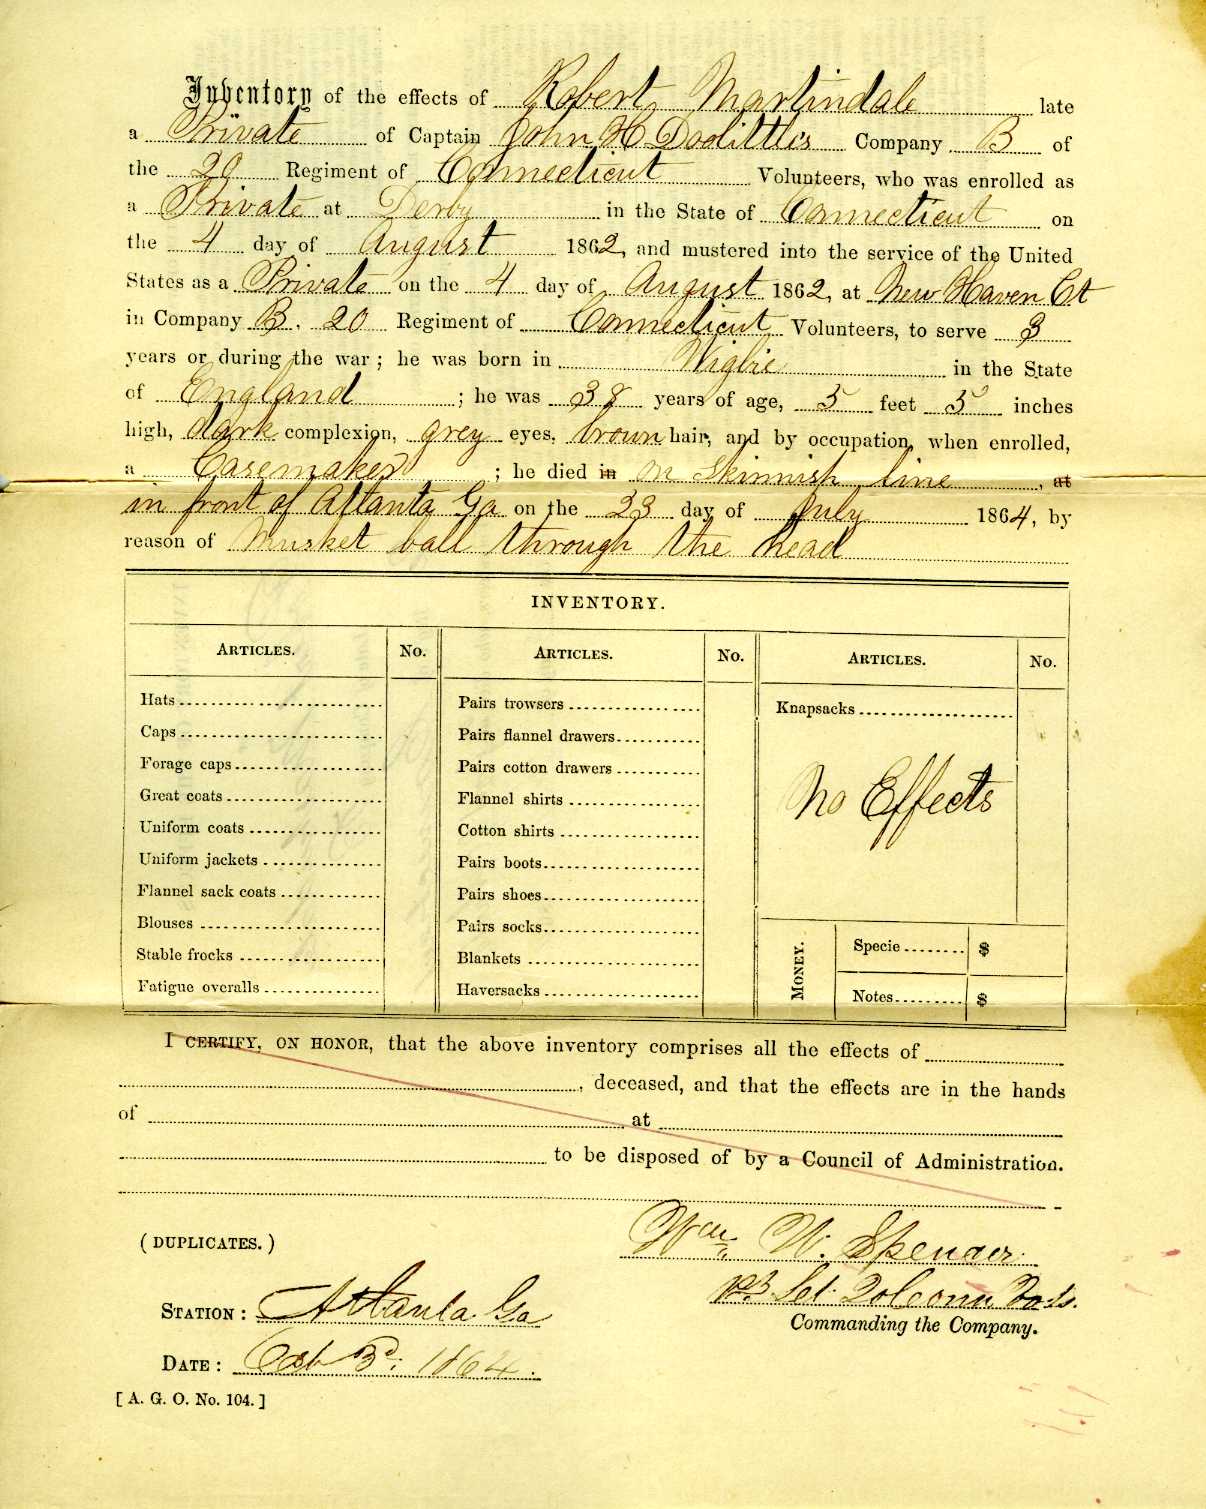 Inventory of the effects of Robert Martindale late
a Private of Captain John H Doolittle's Company B of
the 20 Regiment of Connecticut Volunteers, who was enrolled as
a Private at Derby in the State of Connecticut on
the 4 day of August 1862, and mustered into the service of the United
States as a Private on the 4 day of August 1862, at New Haven Ct
in Company B. 20 Regiment of Connecticut Volunteers, to serve 3
years or during the war; he was born in in the State
of England; he was 38 years of age, 5 feet 5 inches
high, dark complexion, grey eyes, brown hair, and by occupation, when enrolled,
a Casemaker; he died in on skirmish line, at
in front of Atlanta Ga on the 23 day of July 1864, by
reason of Musket ball through the head
INVENTORY.
ARTICLES. No. ARTICLES. No. ARTICLES. No.
Hats
Caps
Forage caps
Great coats
Uniform coats
Uniform jackets
Flannel sack coats
Blouses
Stable frocks
Fatigue overalls
Pairs trowsers
Pairs flannel drawers
Pairs cotton drawers
Flannel shirts
Cotton shirts
Pairs boots
Pairs shoes
Pairs socks
Blankets
Haversacks
Knapsacks
No Effects
MONEY.
Specie $
Notes $
I CERTIFY, ON HONOR, that the above inventory comprises all the effects of
, deceased, and that the effects are in the hands
of at
to be disposed of by a Council of Administration.
(DUPLICATES.)
Wm. W. Spencer
1st Sgt. 20 Conn Vols.
Commanding the Company.
STATION: Atlanta Ga
DATE: Oct 3d: 1864.
[A. G. O. No. 104.]